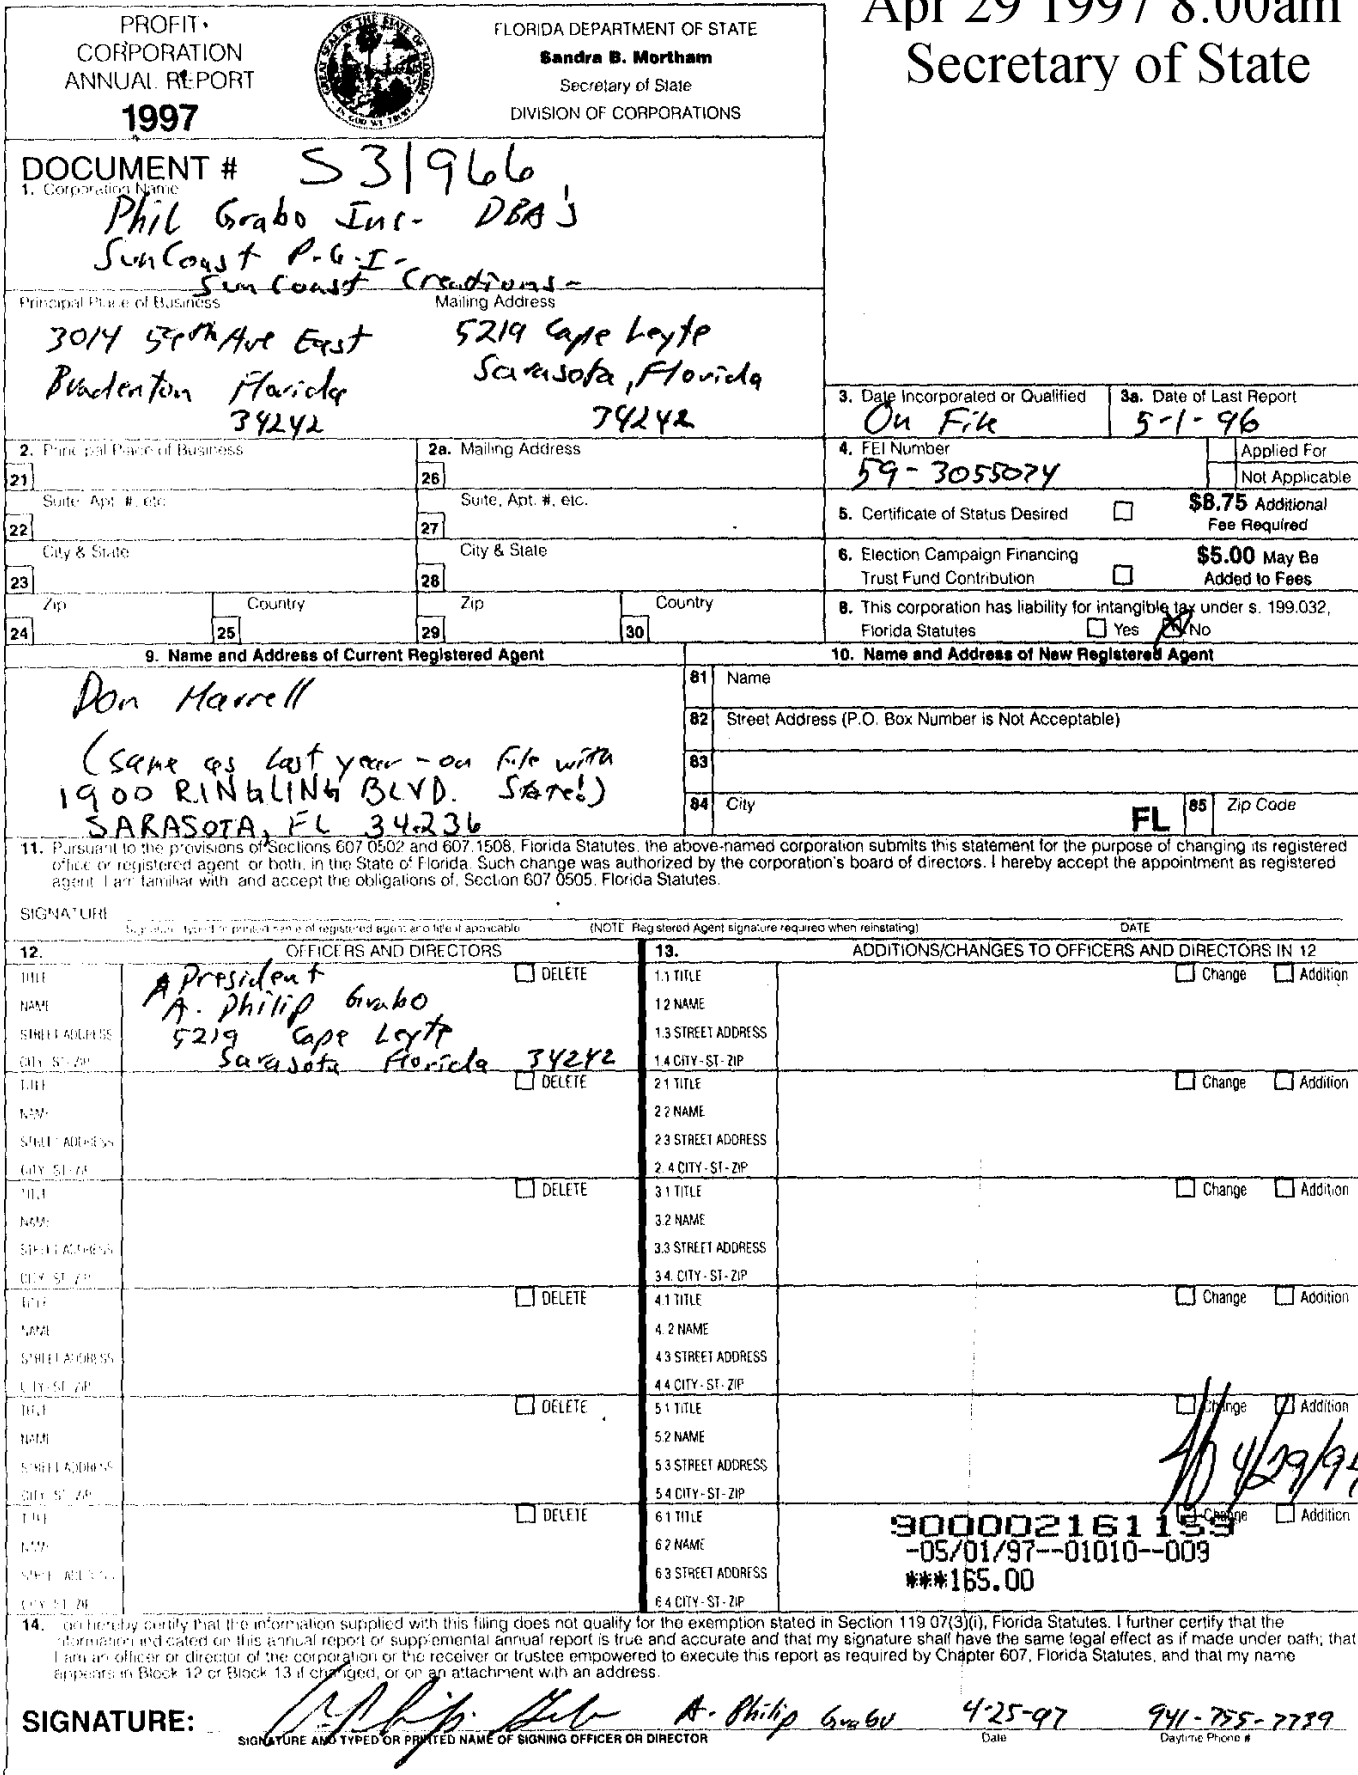 PROFIT
CORPORATION
ANNUAL REPORT
1997
FLORIDA DEPARTMENT OF STATE
Sandra B. Mortham
Secretary of State
DIVISION OF CORPORATIONS
Apr 29 1997 8:00am
Secretary of State
DOCUMENT # S31966
1. Corporation Name
Phil Grabo Inc- DBA's
SunCoast P.G.I-
Sun Coast Creations-
Principal Place of Business
Mailing Address
3014 Ave East
Bradenton Florida
34242
5219 Cape Leyte
Sarasota, Florida
34242
3. Date Incorporated or Qualified
On File
3a. Date of Last Report
5-1-96
2. Principal Place of Business
2a. Mailing Address
4. FEI Number
59-3055074
Applied For
Not Applicable
21
26
Suite, Apt. #, etc.
Suite, Apt. #, etc.
22
27
5. Certificate of Status Desired
$8.75 Additional
Fee Required
City & State
City & State
23
28
6. Election Campaign Financing
Trust Fund Contribution
$5.00 May Be
Added to Fees
Zip
Country
Zip
Country
24
25
29
30
8. This corporation has liability for intangible tax under s. 199.032,
Florida Statutes Yes No
9. Name and Address of Current Registered Agent
10. Name and Address of New Registered Agent
Don Harrell
(same as last year - on file with
State!)
1900 RINGLING BLVD.
SARASOTA, FL 34236
81 Name
82 Street Address (P.O. Box Number is Not Acceptable)
83
84 City
FL
85 Zip Code
11. Pursuant to the provisions of Sections 607.0502 and 607.1508, Florida Statutes, the above-named corporation submits this statement for the purpose of changing its registered
office or registered agent or both, in the State of Florida. Such change was authorized by the corporation's board of directors. I hereby accept the appointment as registered
agent. I am familiar with and accept the obligations of, Section 607.0505, Florida Statutes.
SIGNATURE
Signature, typed or printed name of registered agent and title if applicable
(NOTE Registered Agent signature required when reinstating)
DATE
12. OFFICERS AND DIRECTORS
13. ADDITIONS/CHANGES TO OFFICERS AND DIRECTORS IN 12
TITLE President DELETE
NAME A. Philip Grabo
STREET ADDRESS 5219 Cape Leyte
CITY-ST-ZIP Sarasota Florida 34242
1.1 TITLE Change Addition
1.2 NAME
1.3 STREET ADDRESS
1.4 CITY-ST-ZIP
TITLE DELETE
NAME
STREET ADDRESS
CITY-ST-ZIP
2.1 TITLE Change Addition
2.2 NAME
2.3 STREET ADDRESS
2.4 CITY-ST-ZIP
TITLE DELETE
NAME
STREET ADDRESS
CITY-ST-ZIP
3.1 TITLE Change Addition
3.2 NAME
3.3 STREET ADDRESS
3.4. CITY-ST-ZIP
TITLE DELETE
NAME
STREET ADDRESS
CITY-ST-ZIP
4.1 TITLE Change Addition
4.2 NAME
4.3 STREET ADDRESS
4.4 CITY-ST-ZIP
TITLE DELETE
NAME
STREET ADDRESS
CITY-ST-ZIP
5.1 TITLE Change Addition
5.2 NAME
5.3 STREET ADDRESS
5.4 CITY-ST-ZIP
4/29/9
TITLE DELETE
NAME
STREET ADDRESS
CITY-ST-ZIP
6.1 TITLE Change Addition
6.2 NAME
6.3 STREET ADDRESS
6.4 CITY-ST-ZIP
900002161159
-05/01/97--01010--009
***165.00
14. I do hereby certify that the information supplied with this filing does not qualify for the exemption stated in Section 119.07(3)(i), Florida Statutes. I further certify that the
information indicated on this annual report or supplemental annual report is true and accurate and that my signature shall have the same legal effect as if made under oath; that
I am an officer or director of the corporation or the receiver or trustee empowered to execute this report as required by Chapter 607, Florida Statutes, and that my name
appears in Block 12 or Block 13 if changed, or on an attachment with an address.
SIGNATURE: A. Philip Grabo 4-25-97 941-755-7739
SIGNATURE AND TYPED OR PRINTED NAME OF SIGNING OFFICER OR DIRECTOR
Date
Daytime Phone #